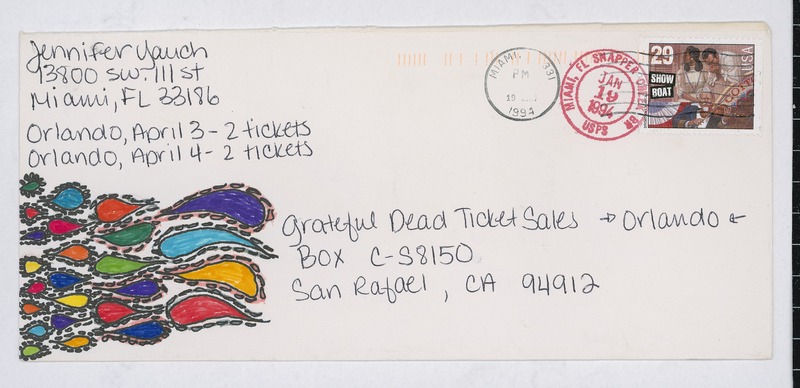 Jennifer Yauch
13800 SW. 111 st
Miami, FL 33186
Orlando, April 3 - 2 tickets
Orlando, April 4 - 2 tickets
MIAMI, 331
PM
19
1994
MIAMI, FL SNAPPER CREEK BR
JAN
19
1994
USPS
29
USA
SHOW
BOAT
Grateful Dead Ticket Sales → Orlando ←
Box C-S8150
San Rafael, CA 94912